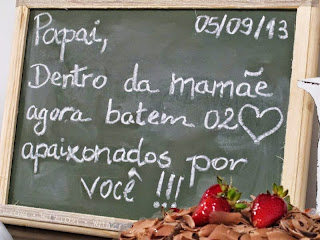 05/09/13
Papai,
Dentro da mamãe
agora batem 02♡
apaixonados por
você !!!